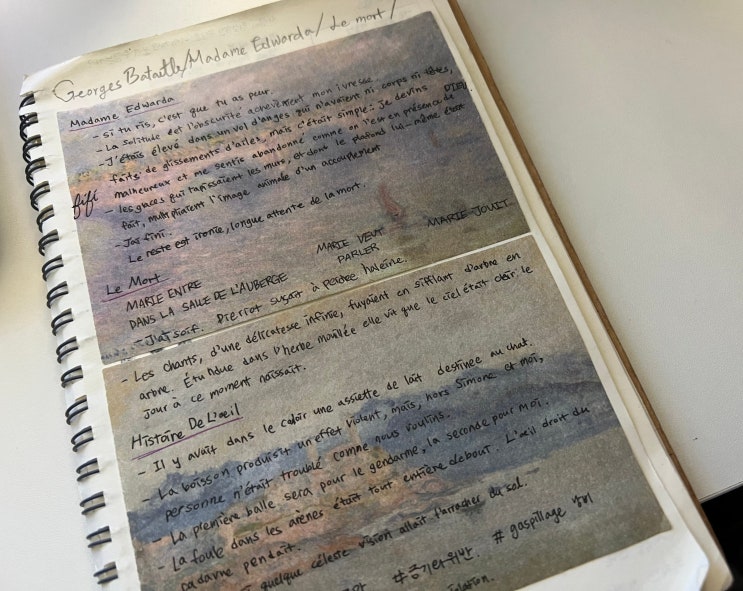 Georges Bataille/Madame Edwarda/Le mort/
Madame Edwarda
- Si tu ris, c'est que tu as peur.
- La solitude et l'obscurité achevèrent mon ivresse.
- J'étais élevé dans un vol d'anges qui n'avaient ni corps ni têtes,
faits de glissements d'ailes, mais c'était simple: je devins DIEU.
malheureux et me sentis abandonné comme on l'est en présence de
fifi
- les glaces qui tapissaient les murs, et dont le plafond lui-même était
fait, multipliaient l'image animale d'un accouplement
- J'ai fini.
Le reste est ironie, longue attente de la mort.
Le Mort
MARIE ENTRE
DANS LA SALLE DE L'AUBERGE
MARIE VEUT
PARLER
MARIE JOUIT
- J'ai soif. Pierrot suçait à perdre haleine.
- Les chants, d'une délicatesse infinie, fuyaient en sifflant d'arbre en
arbre. Étendue dans l'herbe mouillée elle vit que le ciel était clair: le
jour à ce moment naissait.
Histoire De L'œil
- Il y avait dans le couloir une assiette de lait destinée au chat.
- La boisson produisit un effet violent, mais, hors Simone et moi,
personne n'était troublé comme nous voulions.
- La première balle sera pour le gendarme, la seconde pour moi.
- La foule dans les arènes était tout entière debout. L'œil droit du
cadavre pendait.
quelque céleste vision allait l'arracher du sol.
#금기와위반. # gaspillage 낭비